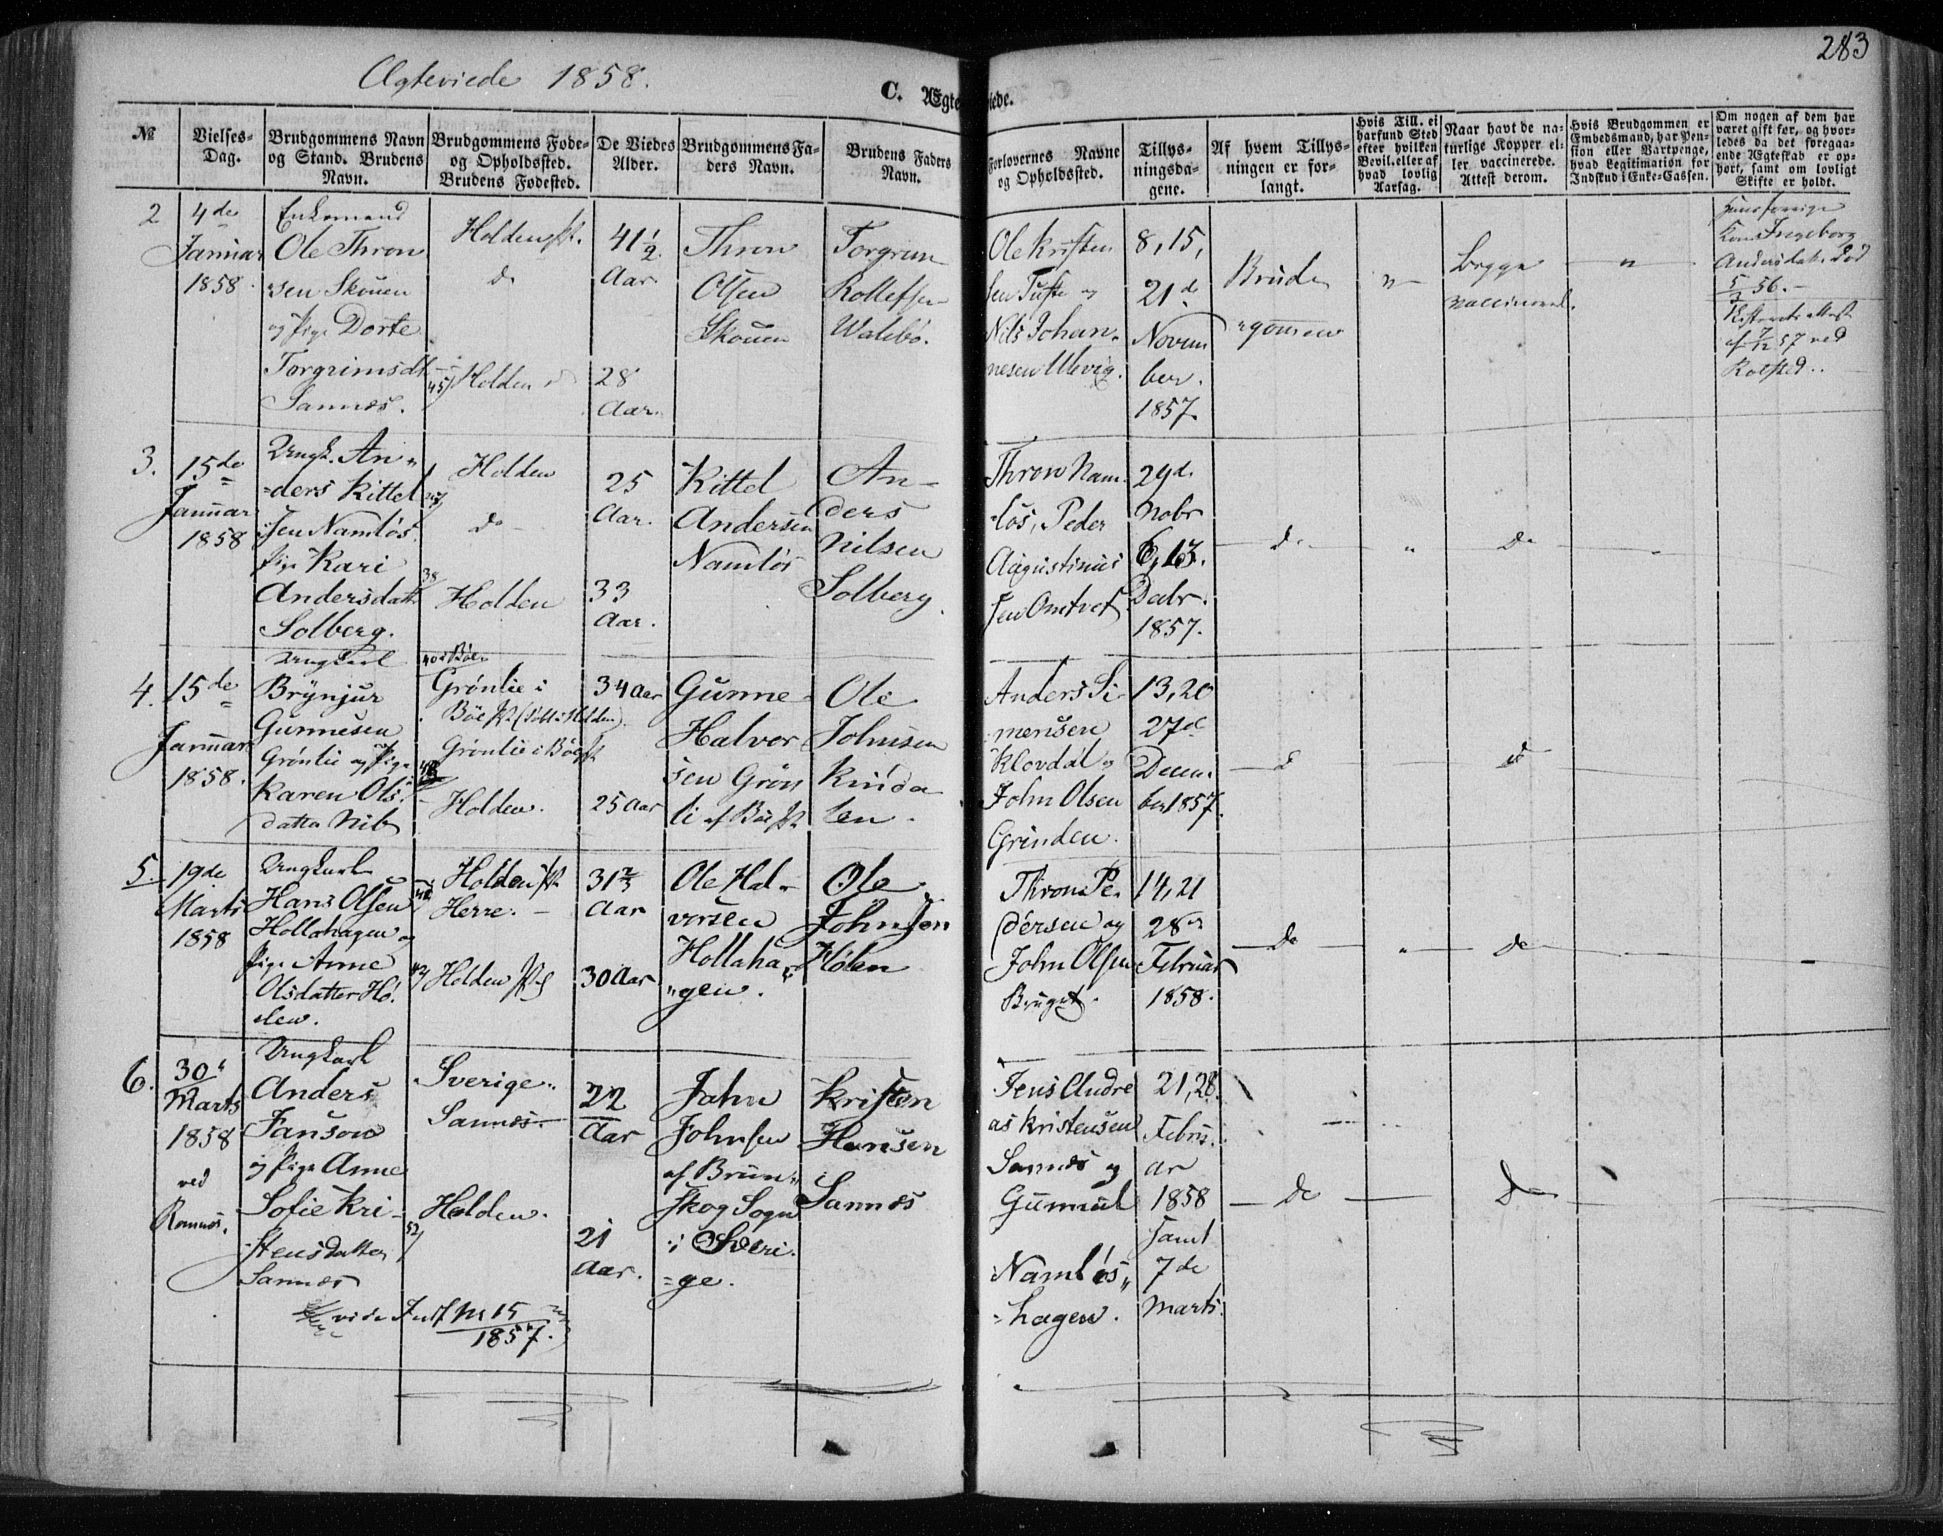 Ægteviede 1858.
283
C. Ægteviede.
№
Vielses-
Dag.
Brudgommens Navn
og Stand. Brudens
Navn.
Brudgommens Føde-
og Opholdssted.
Brudens Fødested.
De Viedes
Alder.
Brudgommens Fa-
ders Navn.
Brudens Faders
Navn.
Forlovernes Navne
og Opholdssted.
Tillys-
ningsda-
gene.
Af hvem Tillys-
ningen er for-
langt.
Hvis Till. ei
har fund Sted
efter hvilken
Bevil. eller af
hvad lovlig
Aarsag.
Naar havt de na-
turlige Kopper el-
ler vaccinerede.
Attest derom.
Hvis Brudgommen er
Embedsmand, har Pen-
sion eller Vartpenge,
hvad Legitimation for
Indskud i Enke-Cassen.
Om nogen af dem har
været gift før, og hvor-
ledes da det foregaa-
ende Ægteskab er op-
hørt, samt om lovligt
Skifte er holdt.
2
4de
Januar
1858.
Enkemand
Ole Thron
sen Skouen
og Pige Dorte
Torgrimsdt
Sannes.
Holden Pr.
do
45/ Holden
41 1/2
Aar
28
Aar.
Thron
Olsen
Skouen
Torgrim
Rollefsen
Walebø.
Ole Kristen
sen Tufte og
Nils Johan-
nesen Ulevig.
8, 15,
21de
Novem
ber.
1857.
Brud
gommen
"
begge
vaccinered.
"
Hans forrige
Kone Ingeborg
Andersdatt. død
56.
Skifterets attest
af 7/12 57 ved
Rolsted.
3.
15de
Januar
1858
Ungk. An-
ders Kittel
sen Namløs.
Pige Kari
Andersdatt
Solberg.
Holden
do
38
Holden
25
Aar.
33
Aar.
Kittel
Andersen
Namløs
An-
ders
Nilsen
Solberg.
Thron Nam-
løs, Peder
Augustinus
sen Omtvet
29d.
Nobr
6, 13.
Decbr.
1857.
do
"
do
"
4.
15de
Januar
1858.
Ungkarl
Brynjur
Gunnesen
Grönlie og Pige
Karen Ols-
datter Nib
Grönlie i
Böe Pr. (Födt i Holden).
Grönlie i Böe Pr
Holden.
34 Aar
25 Aar
Gunne
Halvor
sen Grön
li af Böe Pr.
Ole
Johnsen
Kinda
len.
Anders Si-
mensen
Klovdal og
John Olsen
Grinden.
13, 20
27de
Decem
ber 1857.
d
d
5
19de
Marts
1858
Ungkarl
Hans Olsen
Hollahagen og
Pige Anne
Olsdatter Hø-
len.
Holden Pr.
Herre.
Holden Prg
31 2/3
Aar
30 Aar
Ole Hal-
vorsen
Hollaha-
gen.
Ole
Johnsen
Hølen
Thron Pe-
dersen og
John Olsen
Bruget.
14, 21
28de
Februar
1858.
do
"
do
6.
30te
Marts
1858
ved
Romnes.
Ungkarl
Anders
Janson
og Pige Anne
Sofie Kri-
stensdatter
Sannes
Sverige.
Sannes.
52/
Holden.
22
Aar
21
Aar.
Jahn
Johnsen
af Brun-
skog Sogn
i Sveri-
ge.
Kristen
Hansen
Sannes
Jens Andre
as Kristensen
Sannes og
Gunnul
Namløs-
hagen.
21, 28.
Febru-
ar
1858
samt
7de
Marts.
do
do
vide Indf № 15
1857.